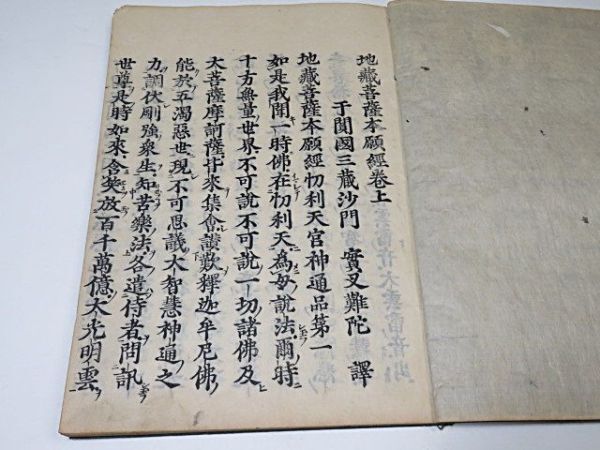 地藏菩薩本願經卷上
于闐國三藏沙門　實叉難陀　譯
地藏菩薩本願經忉利天宮神通品第一
如是我聞一時佛在忉利天為母說法爾時
十方無量世界不可說不可說一切諸佛及
大菩薩摩訶薩皆來集會讃歎釋迦牟尼佛
能於五濁惡世現不可思議大智慧神通之
力調伏剛強衆生知苦樂法各遣侍者問訊
世尊是時如來含笑放百千萬億大光明雲